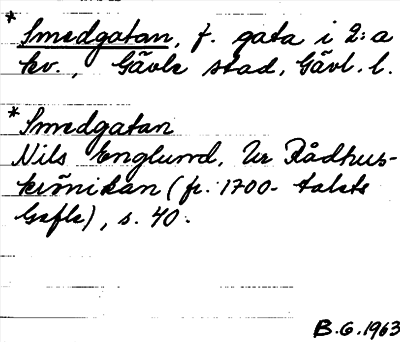 * Smedgatan, f. gata i 2:a
kv., Gävle stad, Gävl. l.
* Smedgatan
Nils Englund, Ur Rådhus-
krönikan (fr. 1700-talets
Gefle), s. 40.
B.G.1963